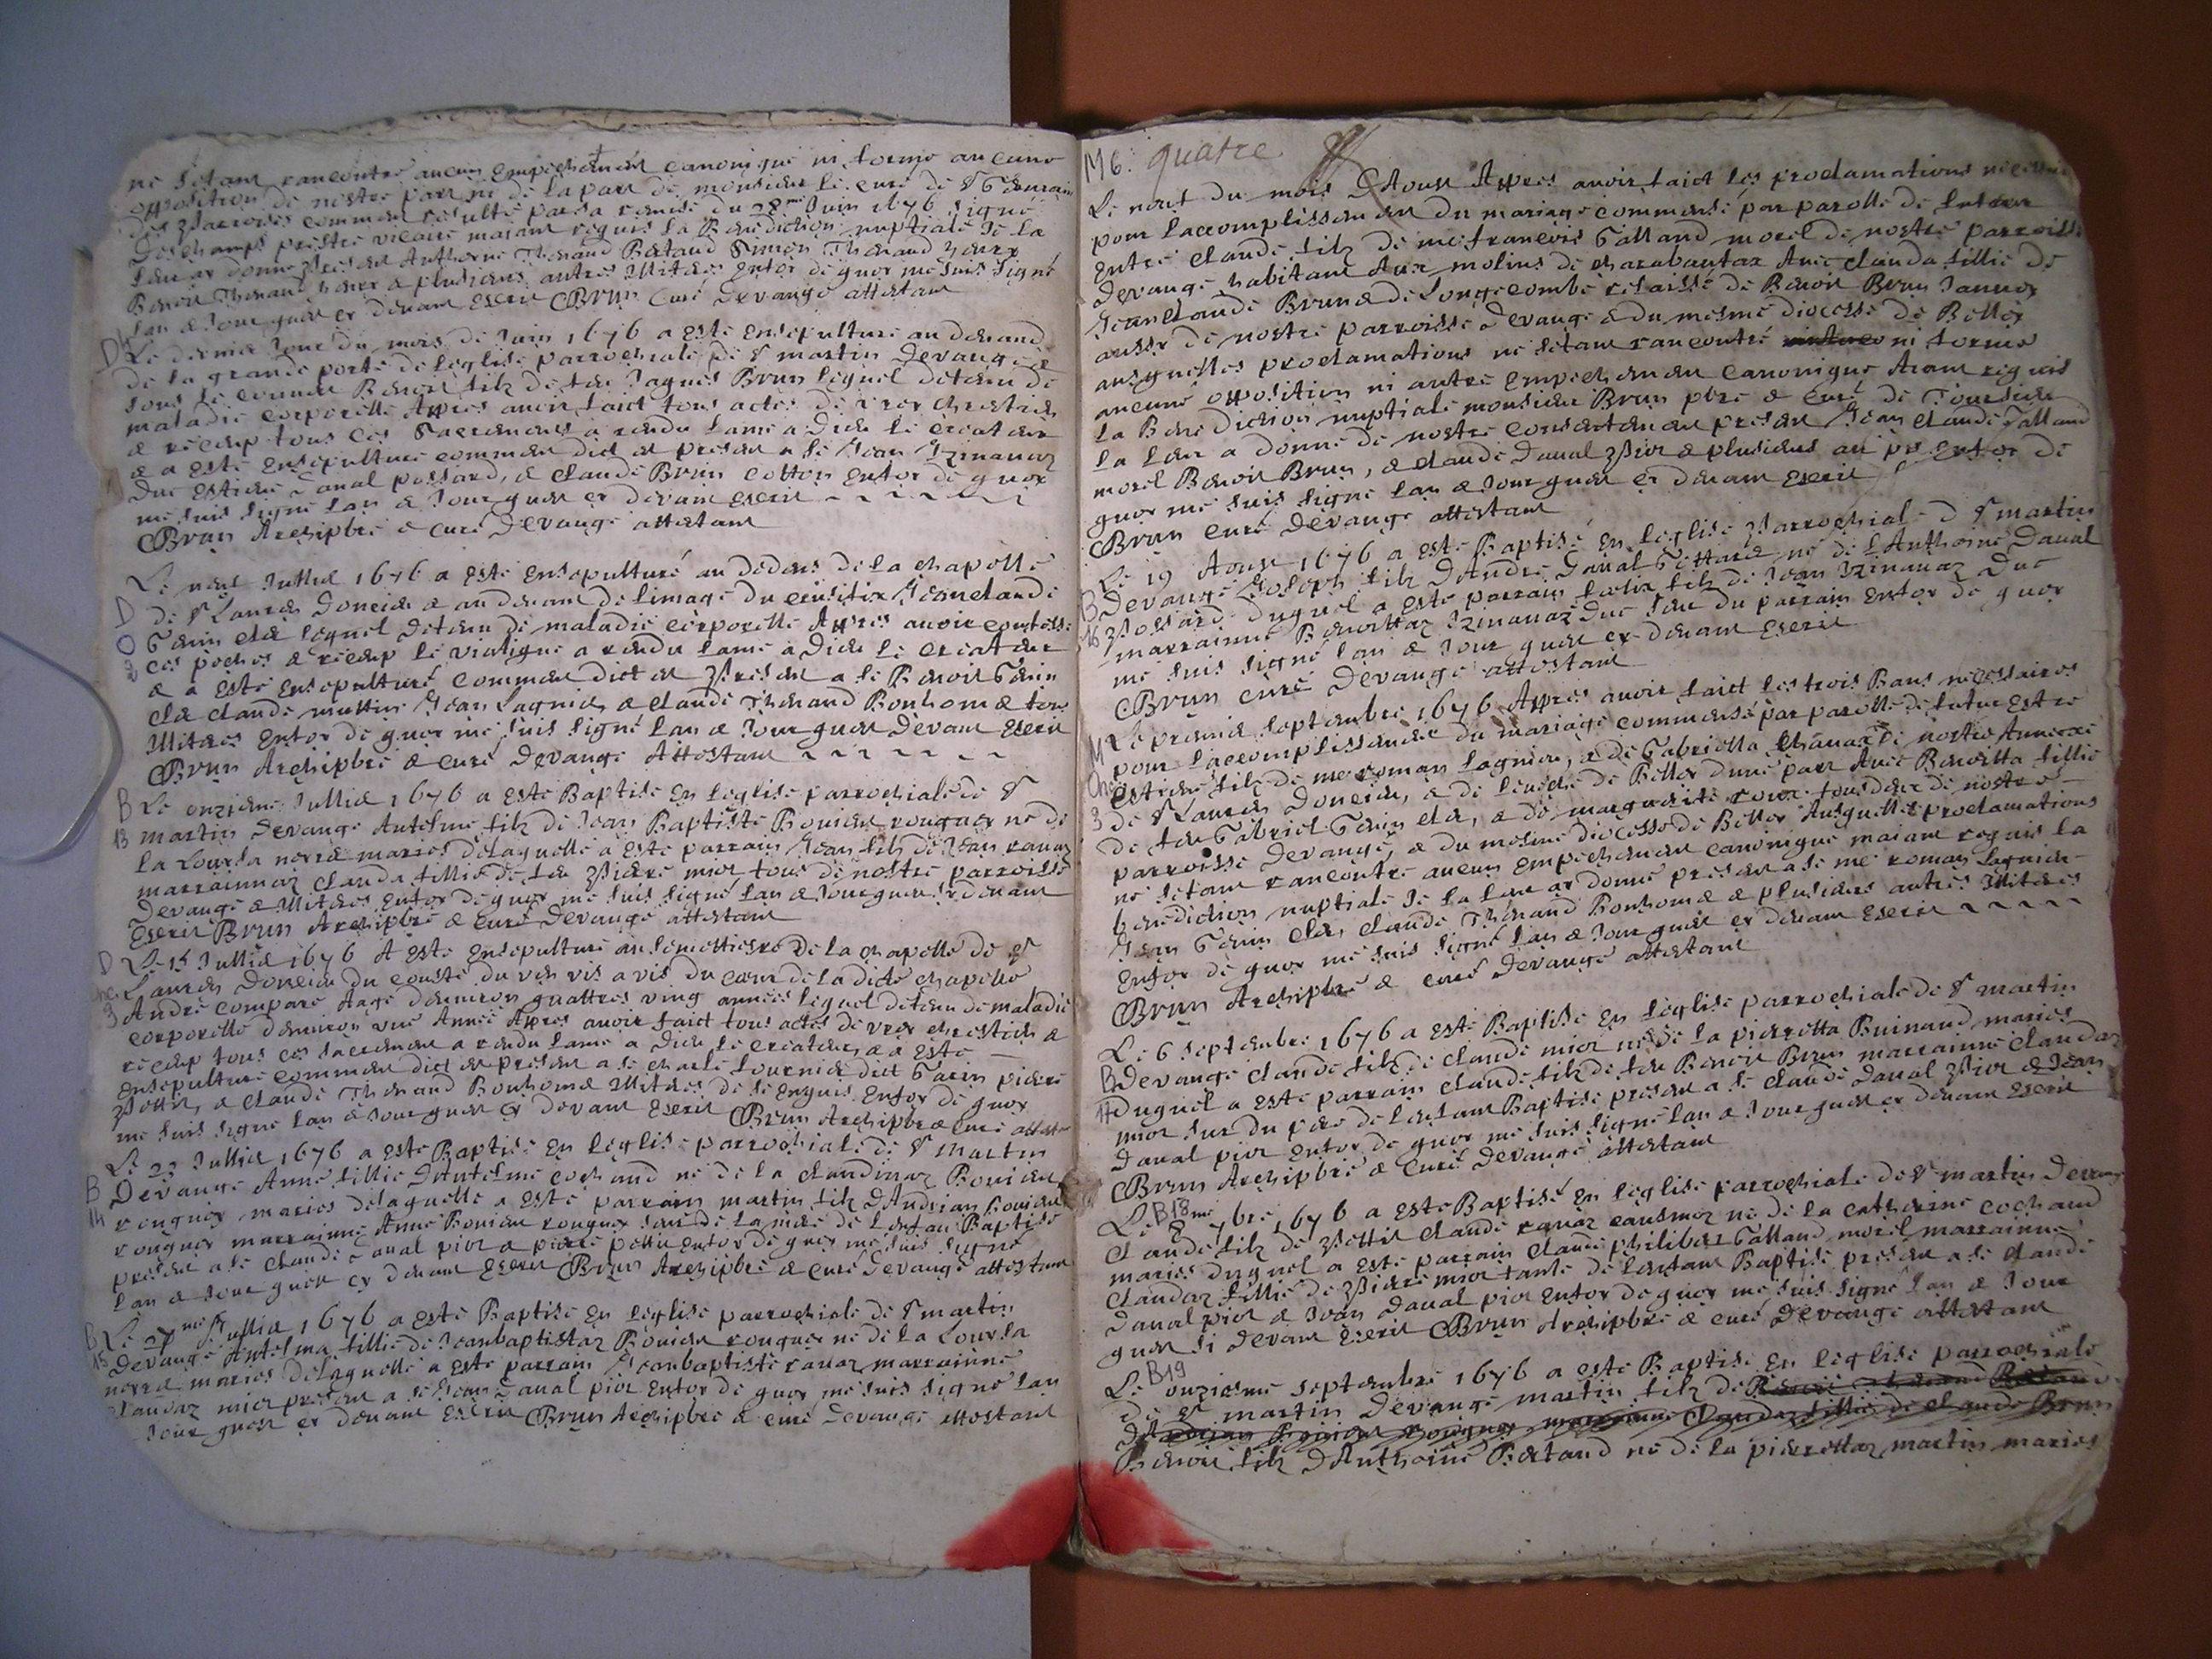 ne sétant rancontré aucun Empechemen canonique ni formé aucune
opposition de nostre part ni de la part de monsieur le curé de St Germain
des parroises commen résulte par sa remise du 28me Juin 1676 signé
Deschamps prestre vicaire maiant requis la Benediction nuptiale Je la
leur ay donné presen Anthoine Thenand Bertand Simon Thenand
Benoit Thenand & plusieurs autres Witnes Enfoy de quoy me suis signé
lan & Jour quen cy devant Escrit Brun Curé Devange attestant
Le dernier Jour du mois de Juin 1676 a esté Ensepulturé au devand
de la grande porte de leglise parrochiale de St martin Devange
sous le couver Benoit filz de feu Jaques Brun lequel détenu de
maladie corporelle Appres avoir faict tous actes de vray chrestien
& receup tous ces Sacremens a rendu lame a Dieu le createur
& a esté Ensepulturé commen dict est presen a le Jean
Duc Estiene Daval possard, & claude Brun cotton Enfoy de quoy
me suis signé lan & Jour quen cy devant Escrit
Brun Archipbre & curé Devange attestant
D Le neuf Jullie 1676 a esté Ensepulturé au dedens de la chapelle
de St Lauren Doncieu & au devant de limage du crusifix Jeanclaude
Genin clet lequel Detenu de maladie corporelle Appres avoir confessé
ces peches & receup le viatique a rendu lame a Dieu le createur
& a esté Ensepulturé commen dict est presen a le Benoit Genin
clet claude muttin Jean Lagnieu & claude Thenand Bonhome tous
Witnes Enfoy de quoy me suis signé lan & Jour quen Devant Escrit
Brun Archipbre & curé Devange Attestant
B Le onzieme Jullie 1676 a esté Baptisé En leglise parrochiale de St
13 martin Devange Antelme filz de Jean Baptiste Bouieu rouguer né de
la Lourla nerra maries delaquelle a esté parrain Jean filz de Jean ravaz
marrainnaz clauda fillie de feu Pierre mior tous de nostre parroisse
Devange & Witnes Enfoy de quoy me suis signé lan & Jour quen sy devant
Escrit Brun Archipbre & Curé Devange attestant
D Le 15 Jullie 1676 A esté Ensepulturé au semettiesre De la chapelle de St
Lauren Doncieu du cousté du ven vis a vis du cœur de la dicte chapelle
André comparé Aagé denviron quattres ving années lequel detenu de maladie
corporelle denviron une Année Appres avoir faict tous actes de vray chrestien &
receup tous ces sacremens a rendu lame a Dieu le createur, & a esté
Ensepulturé commen dict est presen a le charle fournier dict Garin pierre
Pettit, & claude Thenand Bonhome Witnes de le Enquis Enfoy de quoy
me suis signé lan & Jour quen cy devant Escrit Brun Archipbre & curé attestan
Le 22 Jullie 1676 a esté Baptisé En leglise parrochiale de St Martin
B Devange Anne fillie DAntelme cochand né de la claudinaz Bouieu
14 rouguer maries delaquelle a esté parrain martin filz DAndrian Bouieu
rouguer marrainne Anne Bouieu rouguer seur de la mere de lenfan Baptisé
presen a le claude Daval pior & pierre pettit enfoy de quoy me suis signé
lan & Jour quen cy devant Escrit Brun Archipbre & curé Devange attestant
B Le 27me Jullie 1676 a esté Baptisé En leglise parrochiale de St martin
15 Devange Antelma fillie de Jeanbaptistaz Bouieu rouguer né de la Lourla
nerra maries delaquelle a esté parrain Jeanbaptiste ravaz marrainne
claudaz mior presen a le Jean Daval pior Enfoy de quoy me suis signé lan
Jour quen cy devant Escrit Brun Archipbre & curé Devange attestant
M6: quatre
Le neuf du mois DAoust Appres avoir faict les proclamations necessai
pour laccomplissemen du mariage commensé par parolle de future
Entre claude filz de me francois Galland morel de nostre parroisse
Devange habitant Aux molins de charabautaz Avec clauda fillie de
Jeanclaude Brun & de Longecombe relaissé de Benoit Brun Janno
aussy de nostre parroisse Devange & du mesme diocesse de Belley
ausquelles proclamations ne sétant rancontré ni formé
aucune opposition ni autre Empechemen canonique Aiant requis
la Benediction nuptiale monsieur Brun pbre & curé de Torsieu
la leur a donné de nostre consentemen presen Jean claude Galland
morel Benoit Brun, & claude Daval Pior & plusieurs au pn Enfoy de
quoy me suis signé lan & Jour quen cy devant Escrit
Brun curé Devange attestant
Le 19 Aoust 1676 a esté Baptisé En leglise Parrochial d St martin
B Devange Joseph filz DAndré Daval Gottard né de lAnthoine Daval
16 Possard duquel a esté parrain felix filz de Jean Duc
marrainne Benoittaz Duc seur du parrain Enfoy de quoy
me suis signé lan & Jour quen cy devant Escrit
Brun curé Devange attestant
M Le premié septembre 1676 Appres avoir faict les trois Bans necessaires
pour laccomplissemen du mariage commensé par parolle de futur Entre
Estiene filz de me roman Lagnieu, & de Gabriella chanaz de nostre Annexe
3 de St Lauren Doncieu, & de leveché de Belley dune part Avec Benoitta fillie
de feu Gabriel Genin clet, & de marguerite roux tous deux de nostre
parroisse Devange, & du mesme diocesse de Belley Ausquelles proclamations
ne sétant rancontré aucun Empechemen canonique maiant requis la
benediction nuptiale Je la leur ay donné presen a le me roman Lagnieu
Jean Genin clet, claude Thenand Bonhome & plusieurs autres Witnes
Enfoy de quoy me suis signé lan & Jour quen cy devant Escrit
Brun Archipbre & curé Devange attestant
Le 6 septembre 1676 a esté Baptisé En leglise parrochiale de St martin
B Devange claude filz de claude mior né de la pierretta Buinand maries
17 duquel a esté parrain claude filz de feu Benoit Brun marrainne claudaz
mior seur du pere de lenfant Baptisé presen a le claude Daval Pior & Jean
Daval pior Enfoy de quoy me suis signé lan & Jour quen cy devant Escrit
Brun Archipbre & Curé Devange attestant
B18me
Le 8 7bre 1676 a esté Baptisé En leglise parrochiale de St martin Devange
claude filz de Pettit claude ravaz né de la catherine cochand
maries duquel a esté parrain claude philiber Galland morel marrainne
claudaz fillie de Pierre mior tante de lenfant Baptisé presen a le claude
Daval pior & Jean Daval pior Enfoy de quoy me suis signé lan & Jour
quen si devant Escrit Brun Archipbre & curé Devange attestant
B19
Le onziesme septembre 1676 a esté Baptisé En leglise parrochiale
de St martin Devange martin filz de
marrainne Claudaz fillie de claude Brun
Benoit filz DAnthoine Bertand né de la pierrettaz martin maries